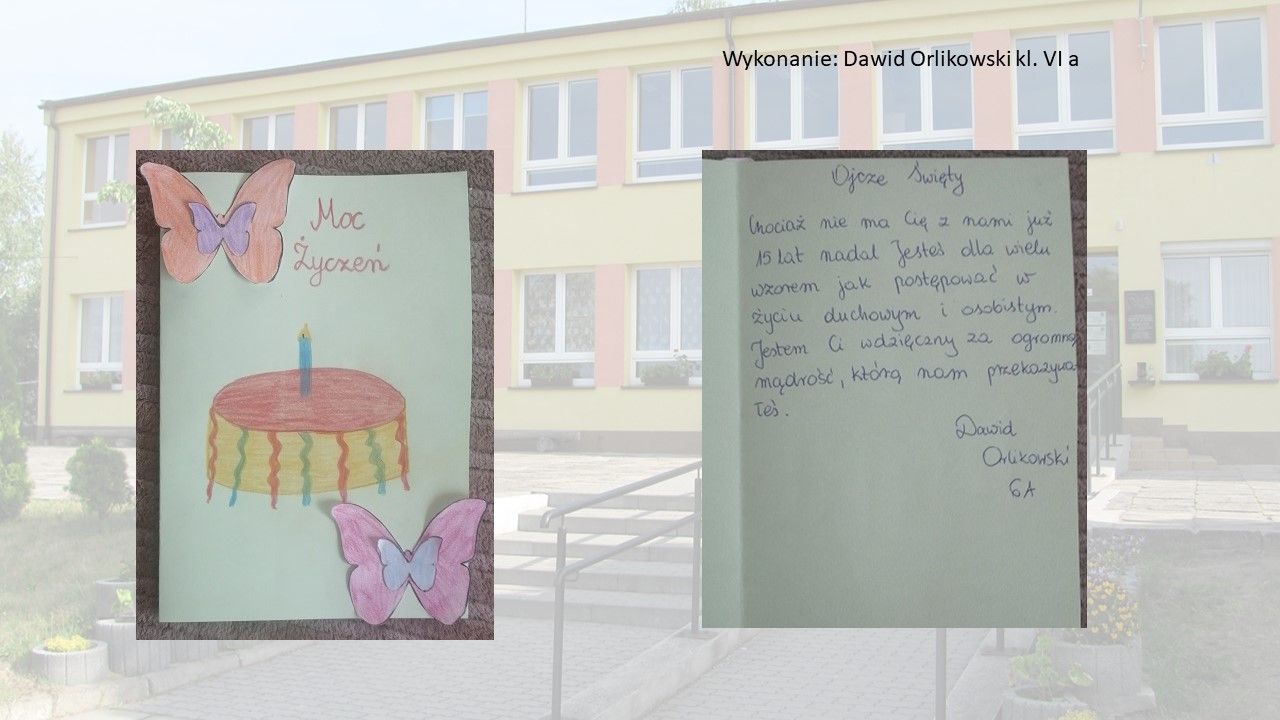 Wykonanie: Dawid Orlikowski kl. VI a
Moc
Życzeń
Ojcze Święty
Chociaż nie ma Cię z nami już
15 lat nadal Jesteś dla wielu
wzorem jak postępować w
życiu duchowym i osobistym.
Jestem Ci wdzięczny za ogromną
mądrość, którą nam przekazywa-
łeś.
Dawid
Orlikowski
6A